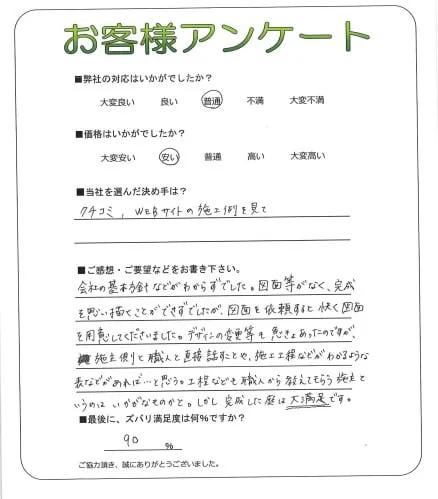 お客様アンケート
■弊社の対応はいかがでしたか？
大変良い 良い 普通 不満 大変不満
■価格はいかがでしたか？
大変安い 安い 普通 高い 大変高い
■当社を選んだ決め手は？
クチコミ, WEBサイトの施工例を見て
■ご感想・ご要望などをお書き下さい。
会社の基本方針などがわからずでした。図面等がなく、完成
を思い描くことができずでしたが、図面を依頼すると快く図面
を用意してくださいました。デザインの変更等もあったのですが、
施主側と職人と直接話すことや、施工工程などがわかるような
表などがあれば…と思う。工程なども職人から教えてもらう施主と
いうのはいかがなものかと。しかし完成した庭は大満足です。
■最後に、ズバリ満足度は何％ですか？
90 ％
ご協力頂き、誠にありがとうございました。